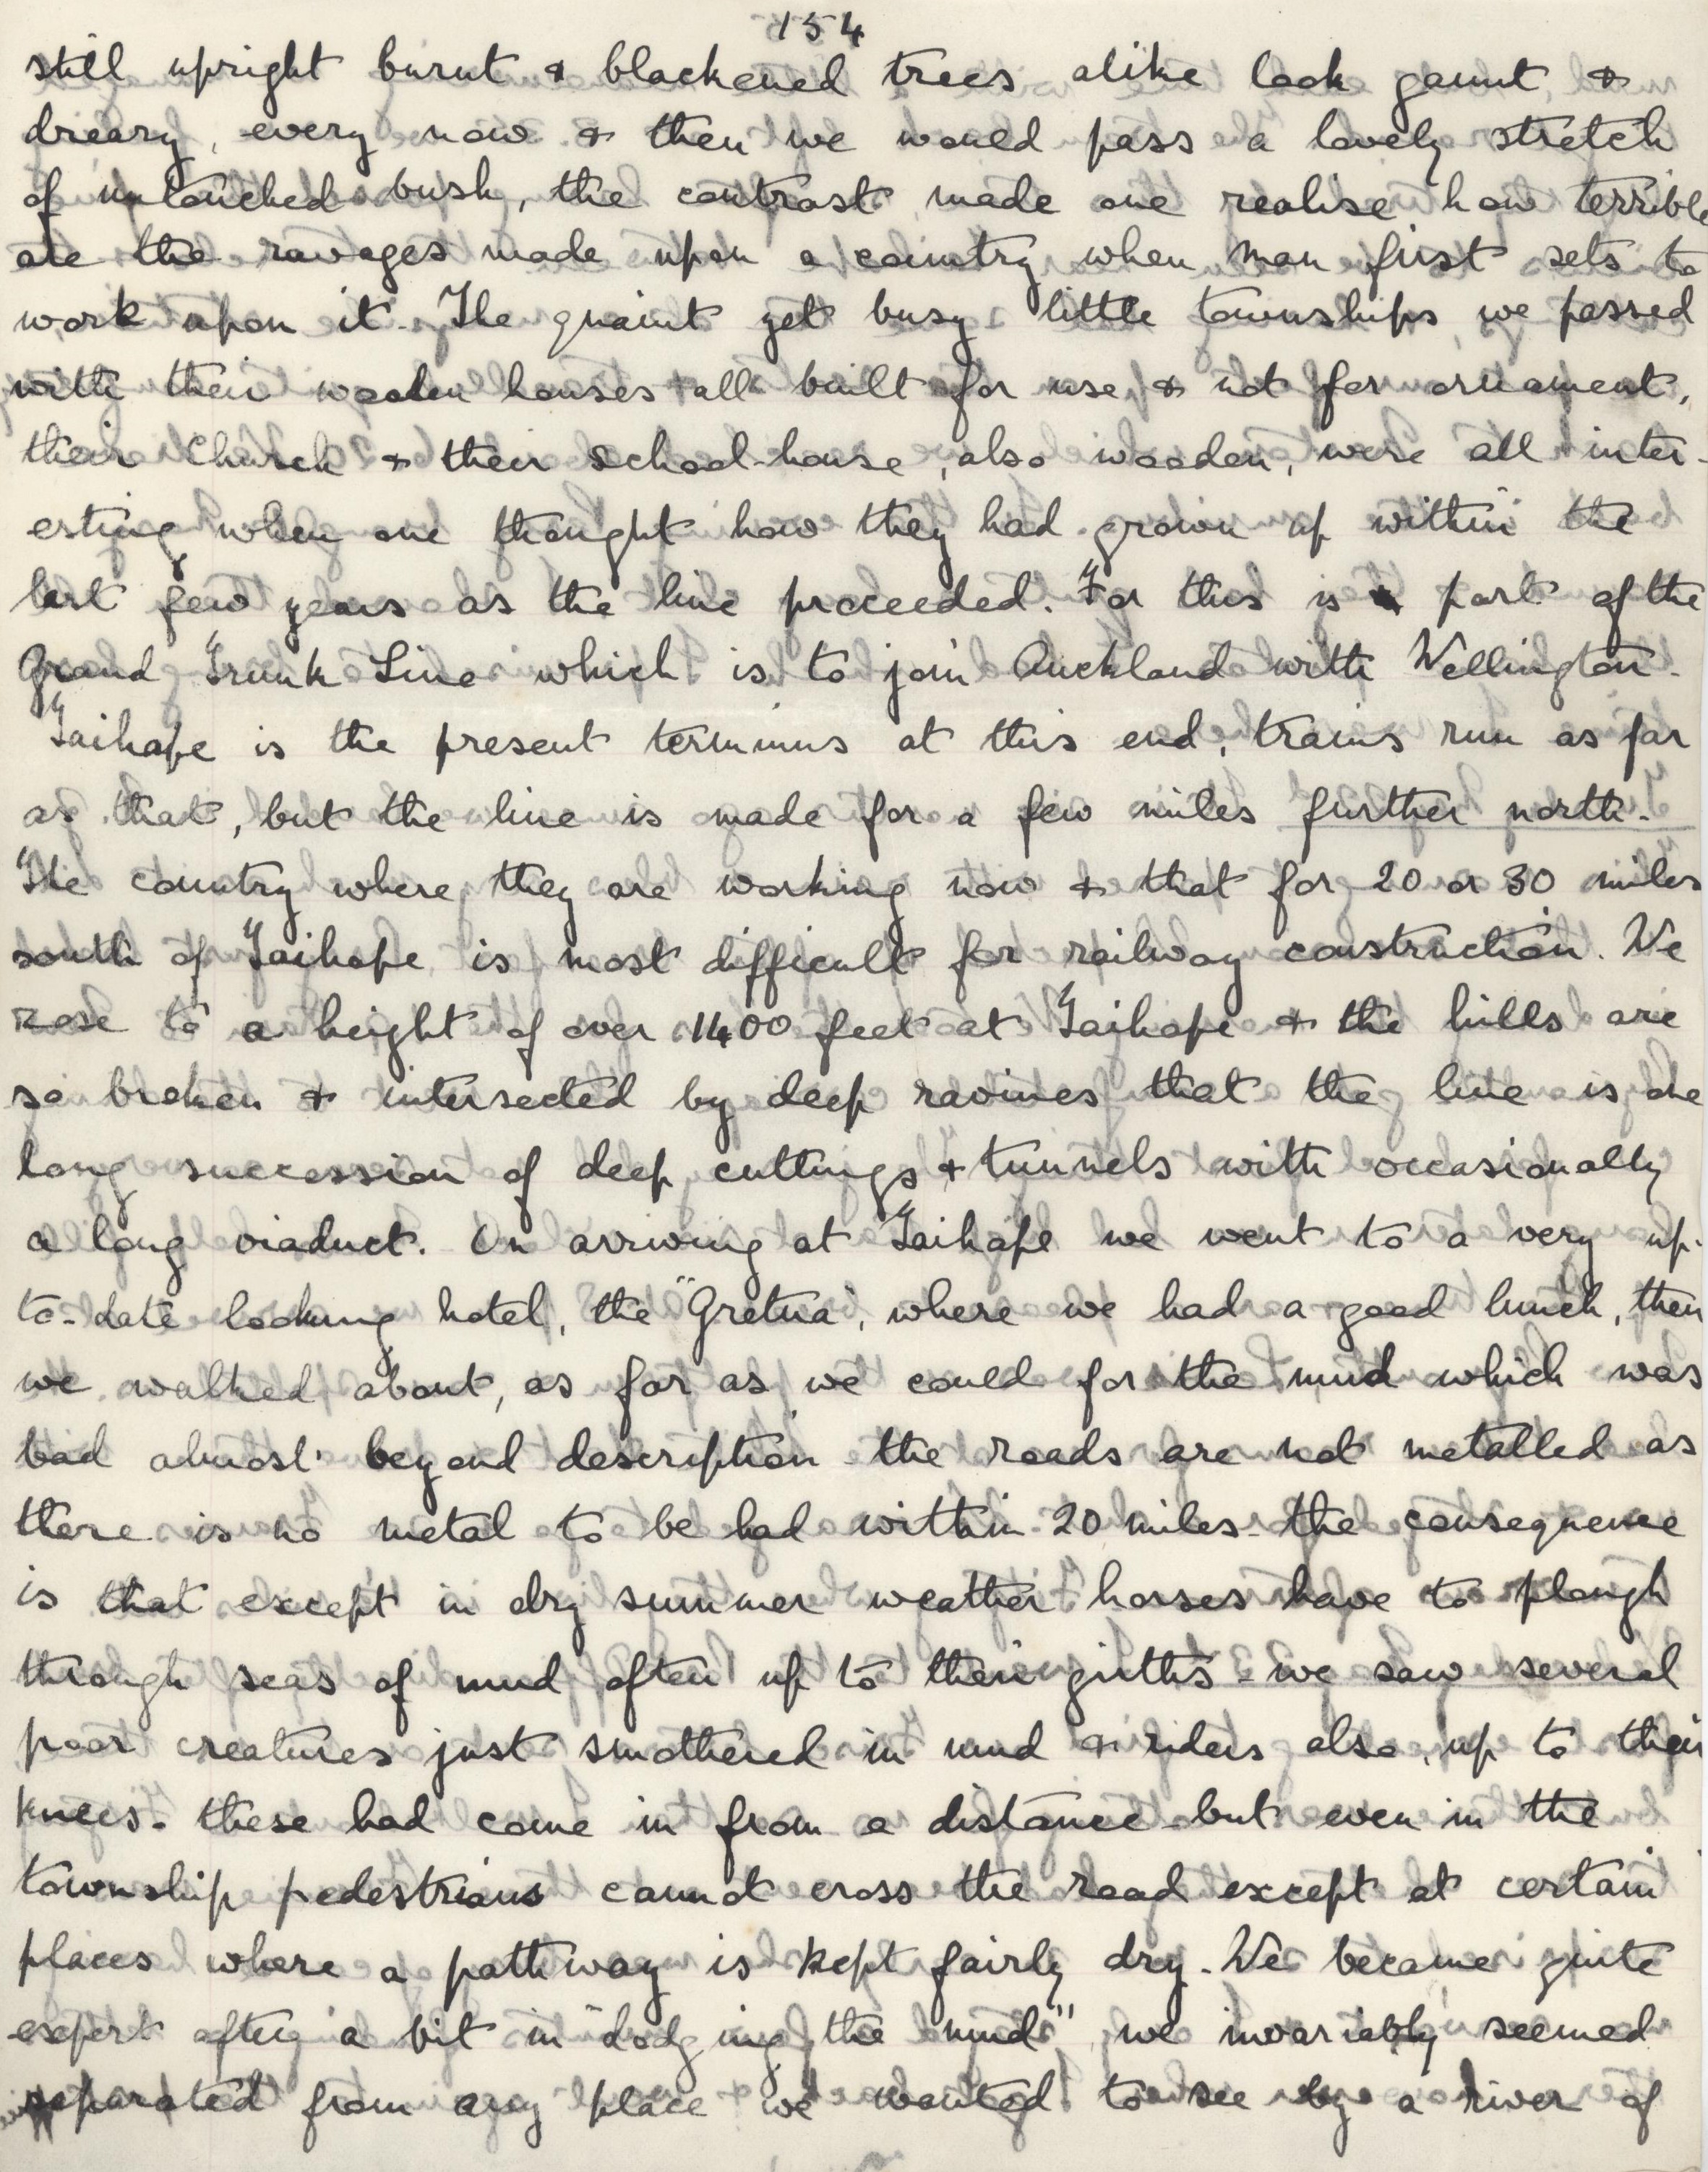 154
still upright burnt & blackened trees alike look gaunt &
dreary, every now & then we would pass a lovely stretch
of untouched bush, the contrast made one realise how terrible
are the ravages made upon a country when man first sets to
work upon it. The quaint yet busy little townships we passed
with their wooden houses all built for use & not for ornament,
their Church & their School-house, also wooden, were all inter-
esting when one thought how they had grown up within the
last few years as the line proceeded. For this is part of the
Grand Trunk Line which is to join Auckland with Wellington.
Taihape is the present terminus at this end, trains run as far
as that, but the line is made for a few miles further north.
The country where they are working now & that for 20 or 30 miles
south of Taihape is most difficult for railway construction. We
rose to a height of over 1400 feet at Taihape & the hills are
so broken & intersected by deep ravines that the line is one
long succession of deep cuttings & tunnels with occasionally
a long viaduct. On arriving at Taihape we went to a very up-
to-date looking hotel, the "Gretna", where we had a good lunch, then
we walked about, as far as we could for the mud which was
bad almost beyond description the roads are not metalled as
there is no metal to be had within 20 miles - the consequence
is that except in dry summer weather horses have to plough
through seas of mud often up to their girths - we saw several
poor creatures just smothered in mud & riders also, up to their
knees - these had come in from a distance - but even in the
township pedestrians cannot cross the road except at certain
places where a pathway is kept fairly dry. We became quite
expert after a bit in "dodging the mud" we invariably seemed
separated from any place we wanted to see by a river of